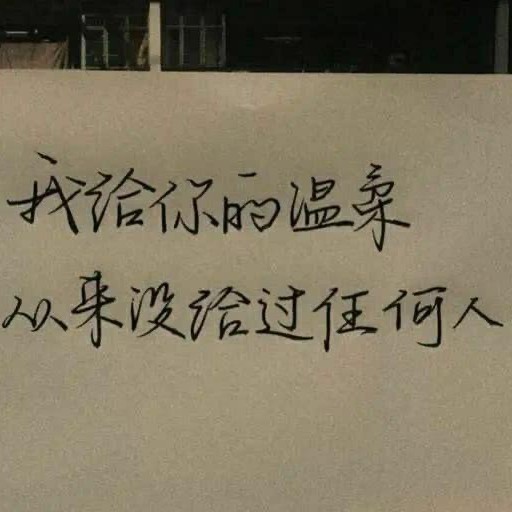 我给你的温柔
从来没给过任何人